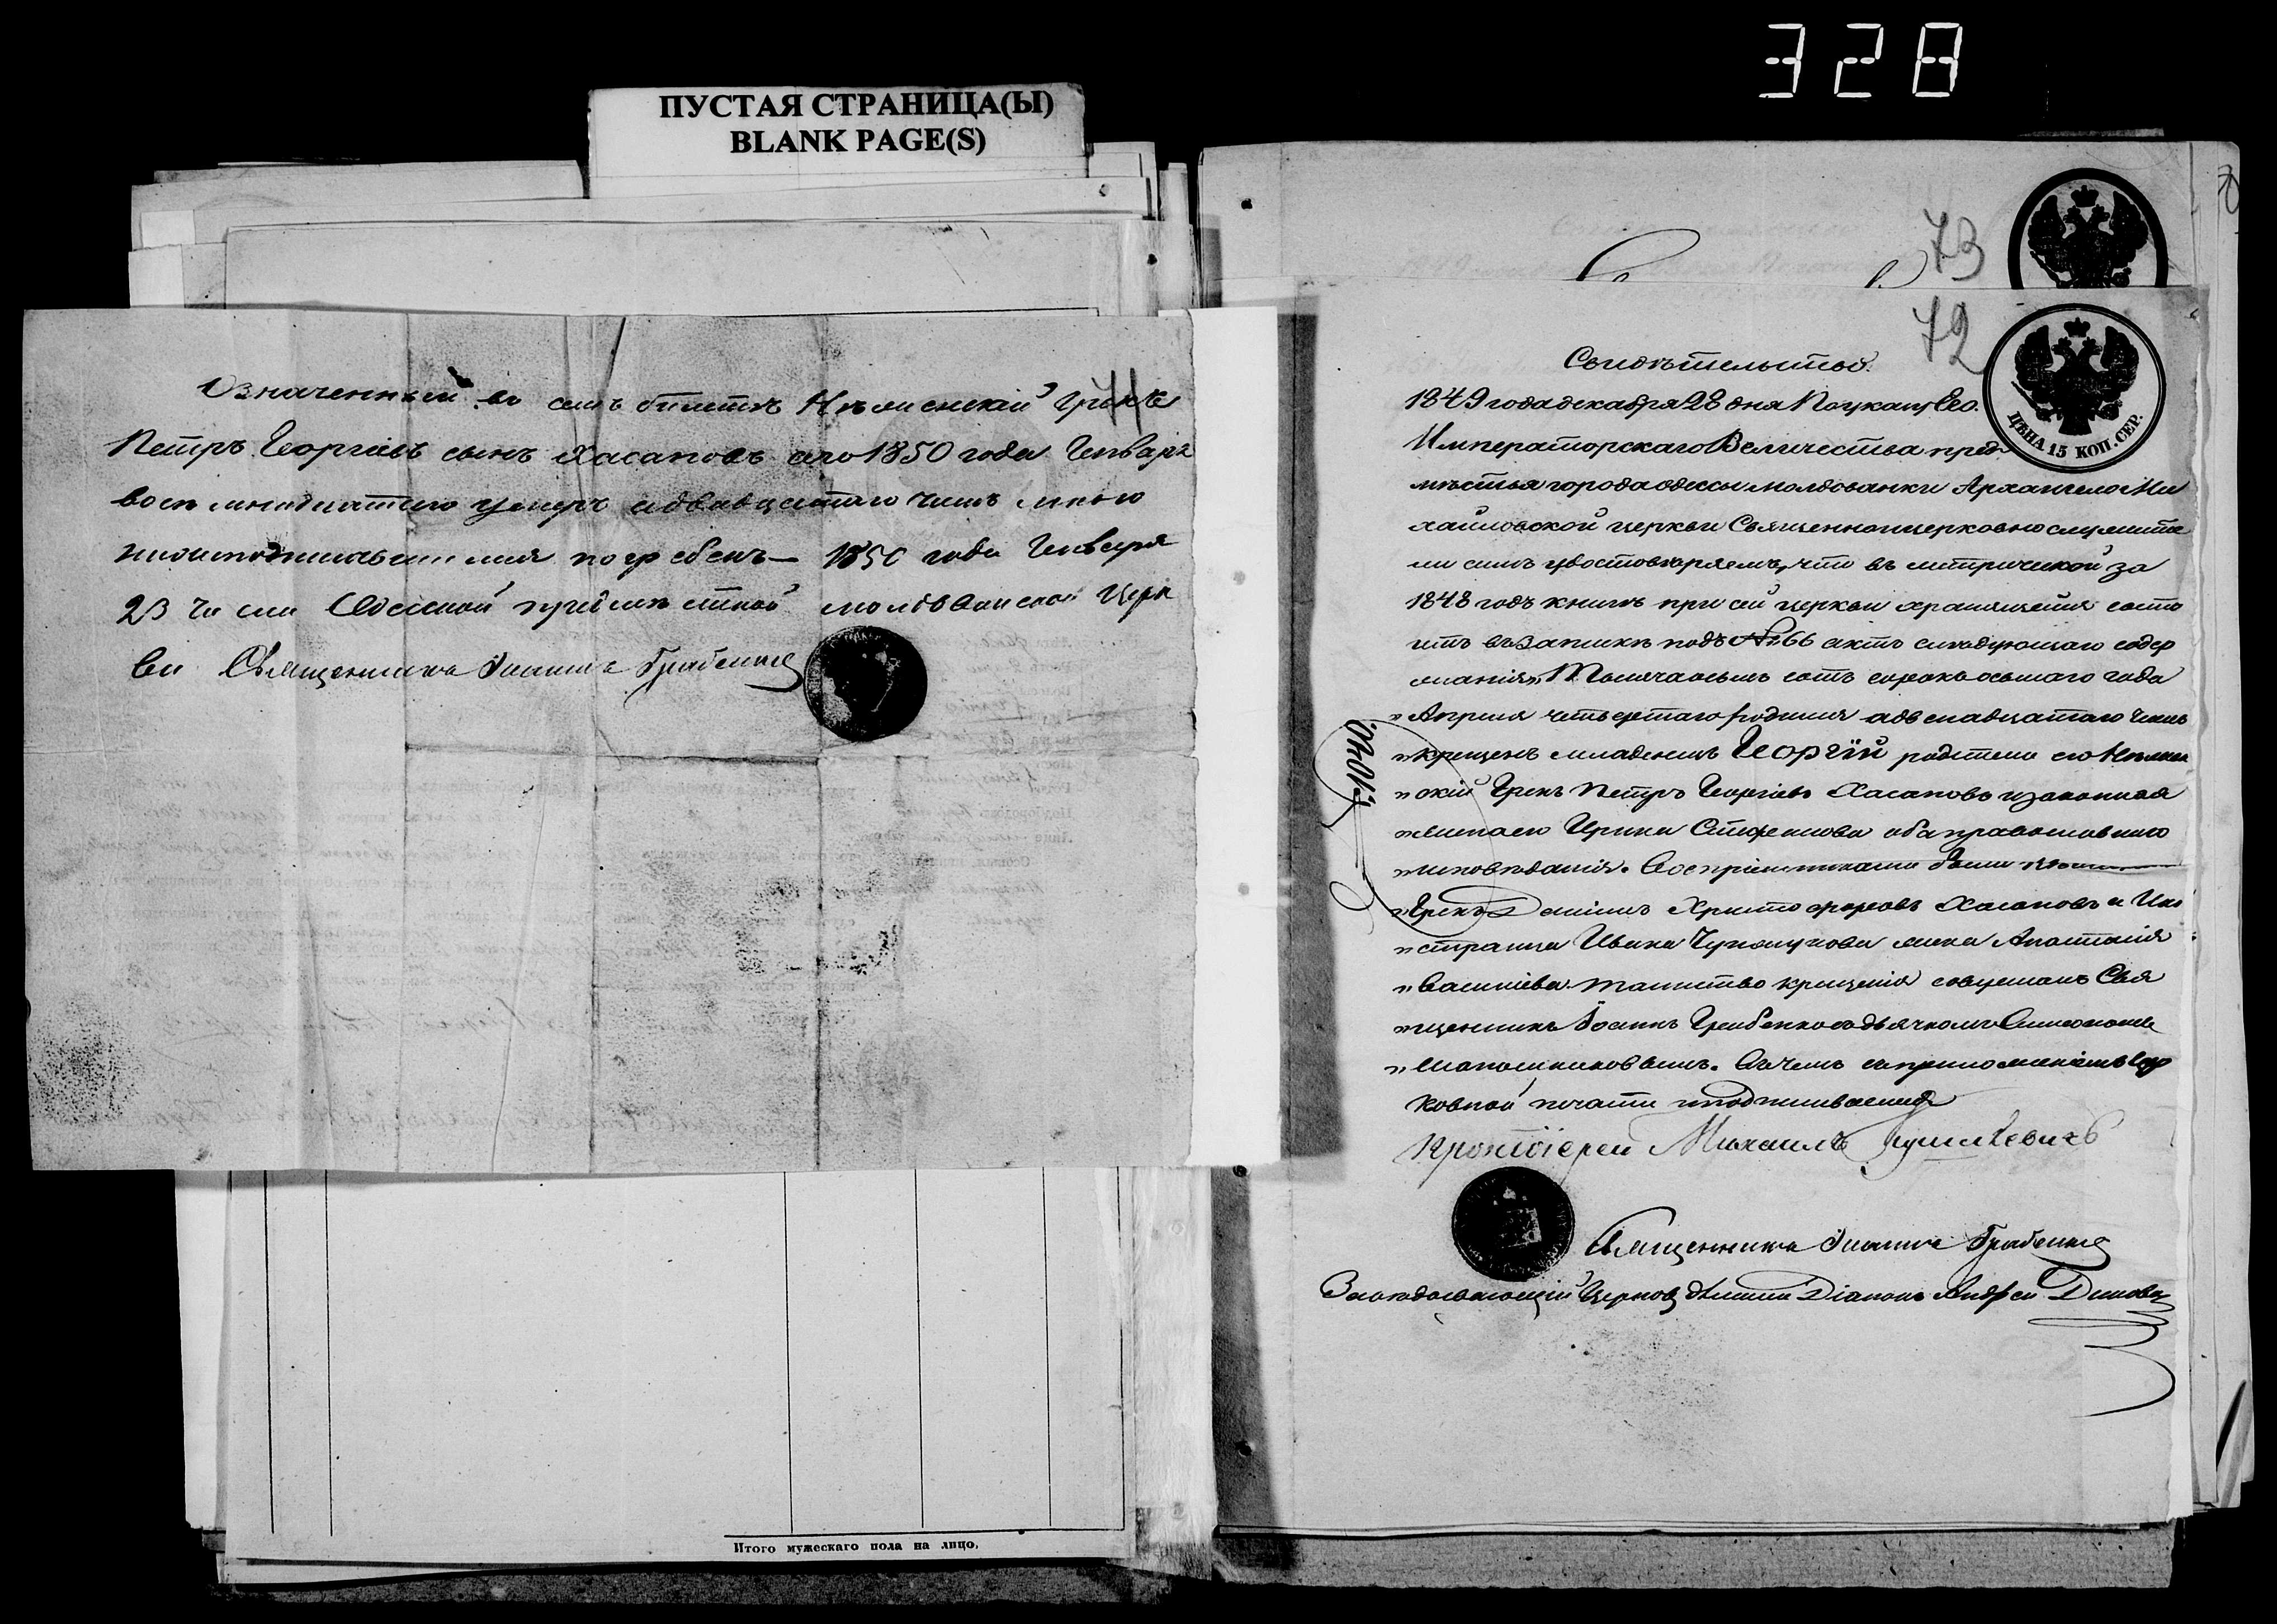 328
ПУСТАЯ СТРАНИЦА(Ы)
BLANK PAGE(S)
Означенный въ семъ билетѣ Нѣжинскій Грекъ
Петръ Георгіевъ сынъ Хасаповъ сего 1850 года Генваря
восемнадцатаго умеръ а двадцатаго числъ мною
нижеподписавшимся погребенъ — 1850 года Генваря
23 числа Одесской предмѣстной молдованской Церк
ви Священникъ Іоаннъ Грабенко
Итого мужескаго пола на лицо,
73
72
ЦѢНА 15 КОП. СЕР.
Свидѣтельство.
1849 года декабря 28 дня По указу Его.
Императорскаго Величества пред
мѣстья города одессы молдованки Архангело Ми
хайловской церкви Священноицерковнослужите
ли симъ удостовѣряемъ, что въ метрической за
1848 годъ книгѣ при сей церкви хранящейся состо
итъ въ записи подъ № 66 актъ слѣдующаго содер
жанія „Тысяча осьмъ сотъ сорокъ осьмаго года
„Апрѣля четвертаго родился а двенадцатаго числъ
„крещенъ младенецъ Георгій родители его Нѣжин
„скій Грекъ Петръ Георгіевъ Хасаповъ и законная
„жена его Ирина Стефанова оба православнаго
„исповѣданія. Воспріемниками были
„Грекъ Христофоровъ Хасаповъ и Ино
„странца Ивана жена Анастасія
„Васильева таинство крещенія совершалъ Свя
„щенникъ Іоаннъ Грабенко съ дьячкомъ
„Шапошниковымъ. Въ чемъ съ приложеніемъ Цер
ковной печати подписываемся
Протоіерей Михаилъ
Священникъ Іоаннъ Грабенко
Діаконъ Андрей